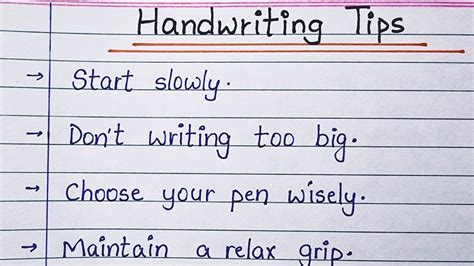 Handwriting Tips
→ Start slowly.
→ Don't writing too big.
→ Choose your pen wisely.
→ Maintain a relax grip.